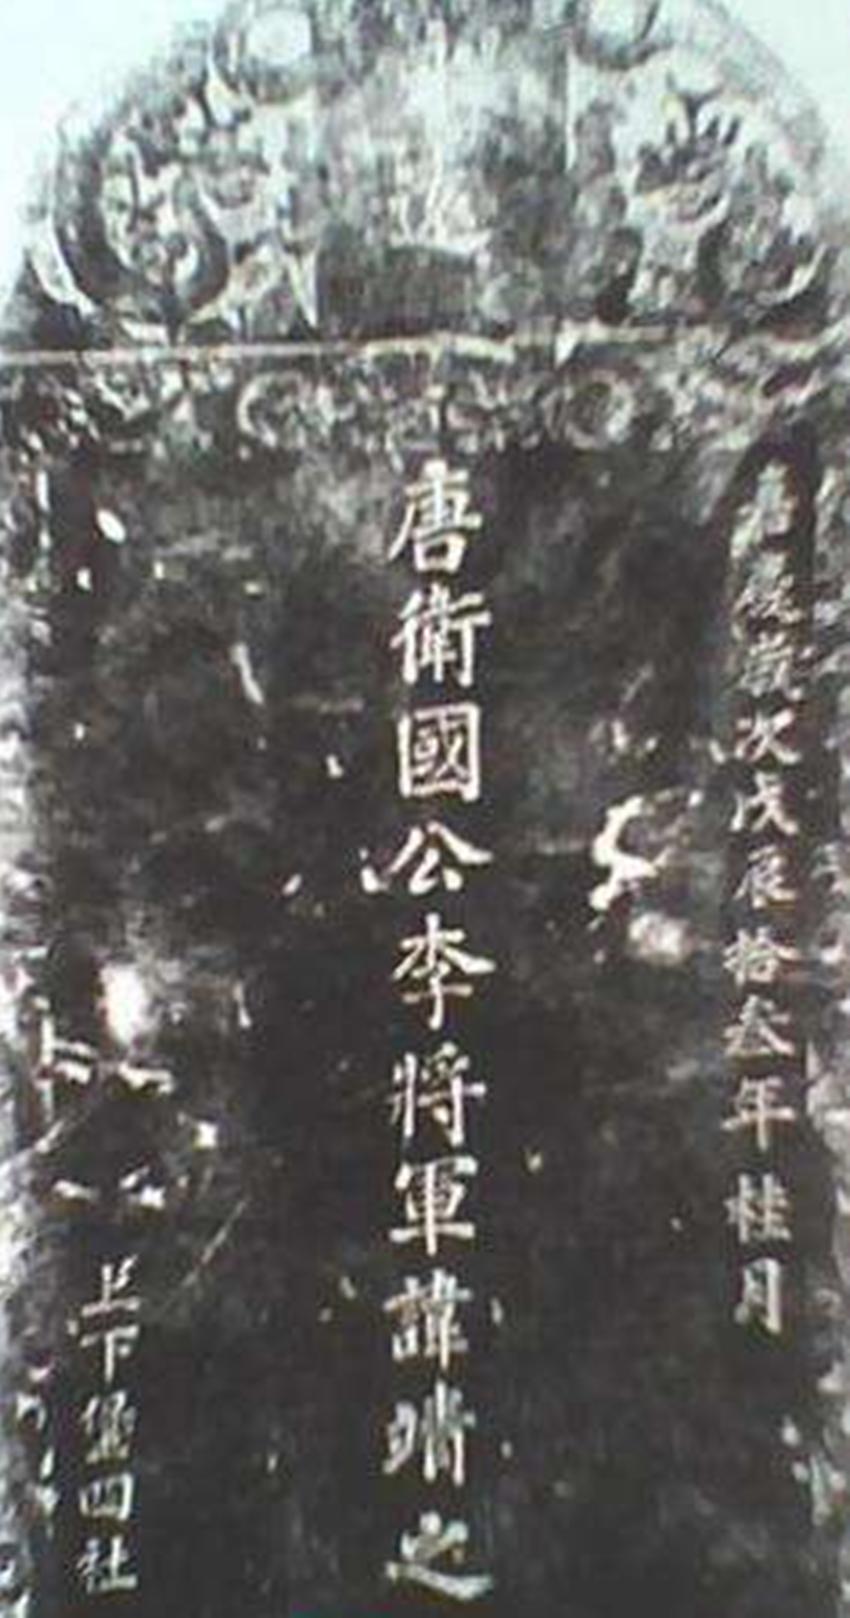 嘉慶歲次戊辰拾叁年桂月
唐衛國公李將軍諱靖之
上下堡四社